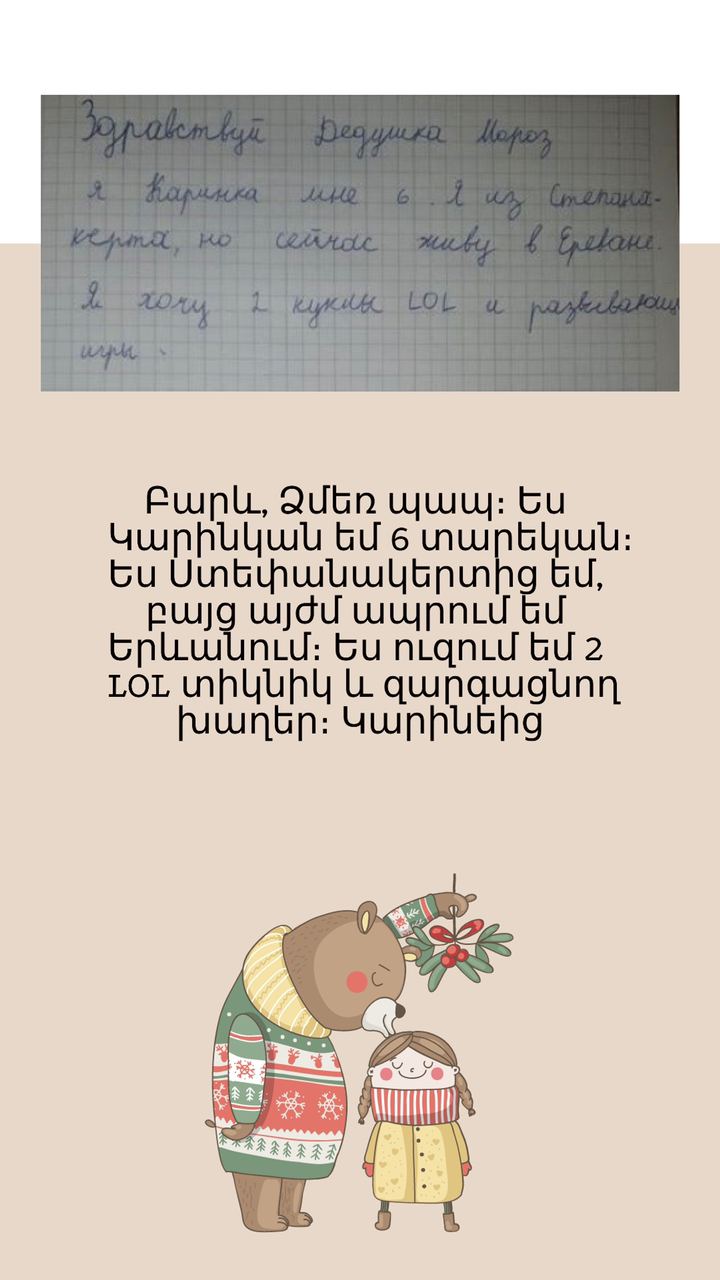 Здравствуй Дедушка Мороз
я Каринка мне 6. Я из Степана-
керта, но сейчас живу в Ереване.
Я хочу 2 куклы LOL и развивающ
игры.
Բարև, Ձմեռ պապ։ Ես
Կարինկան եմ 6 տարեկան։
Ես Ստեփանակերտից եմ,
բայց այժմ ապրում եմ
Երևանում։ Ես ուզում եմ 2
LOL տիկնիկ և զարգացնող
խաղեր։ Կարինեից